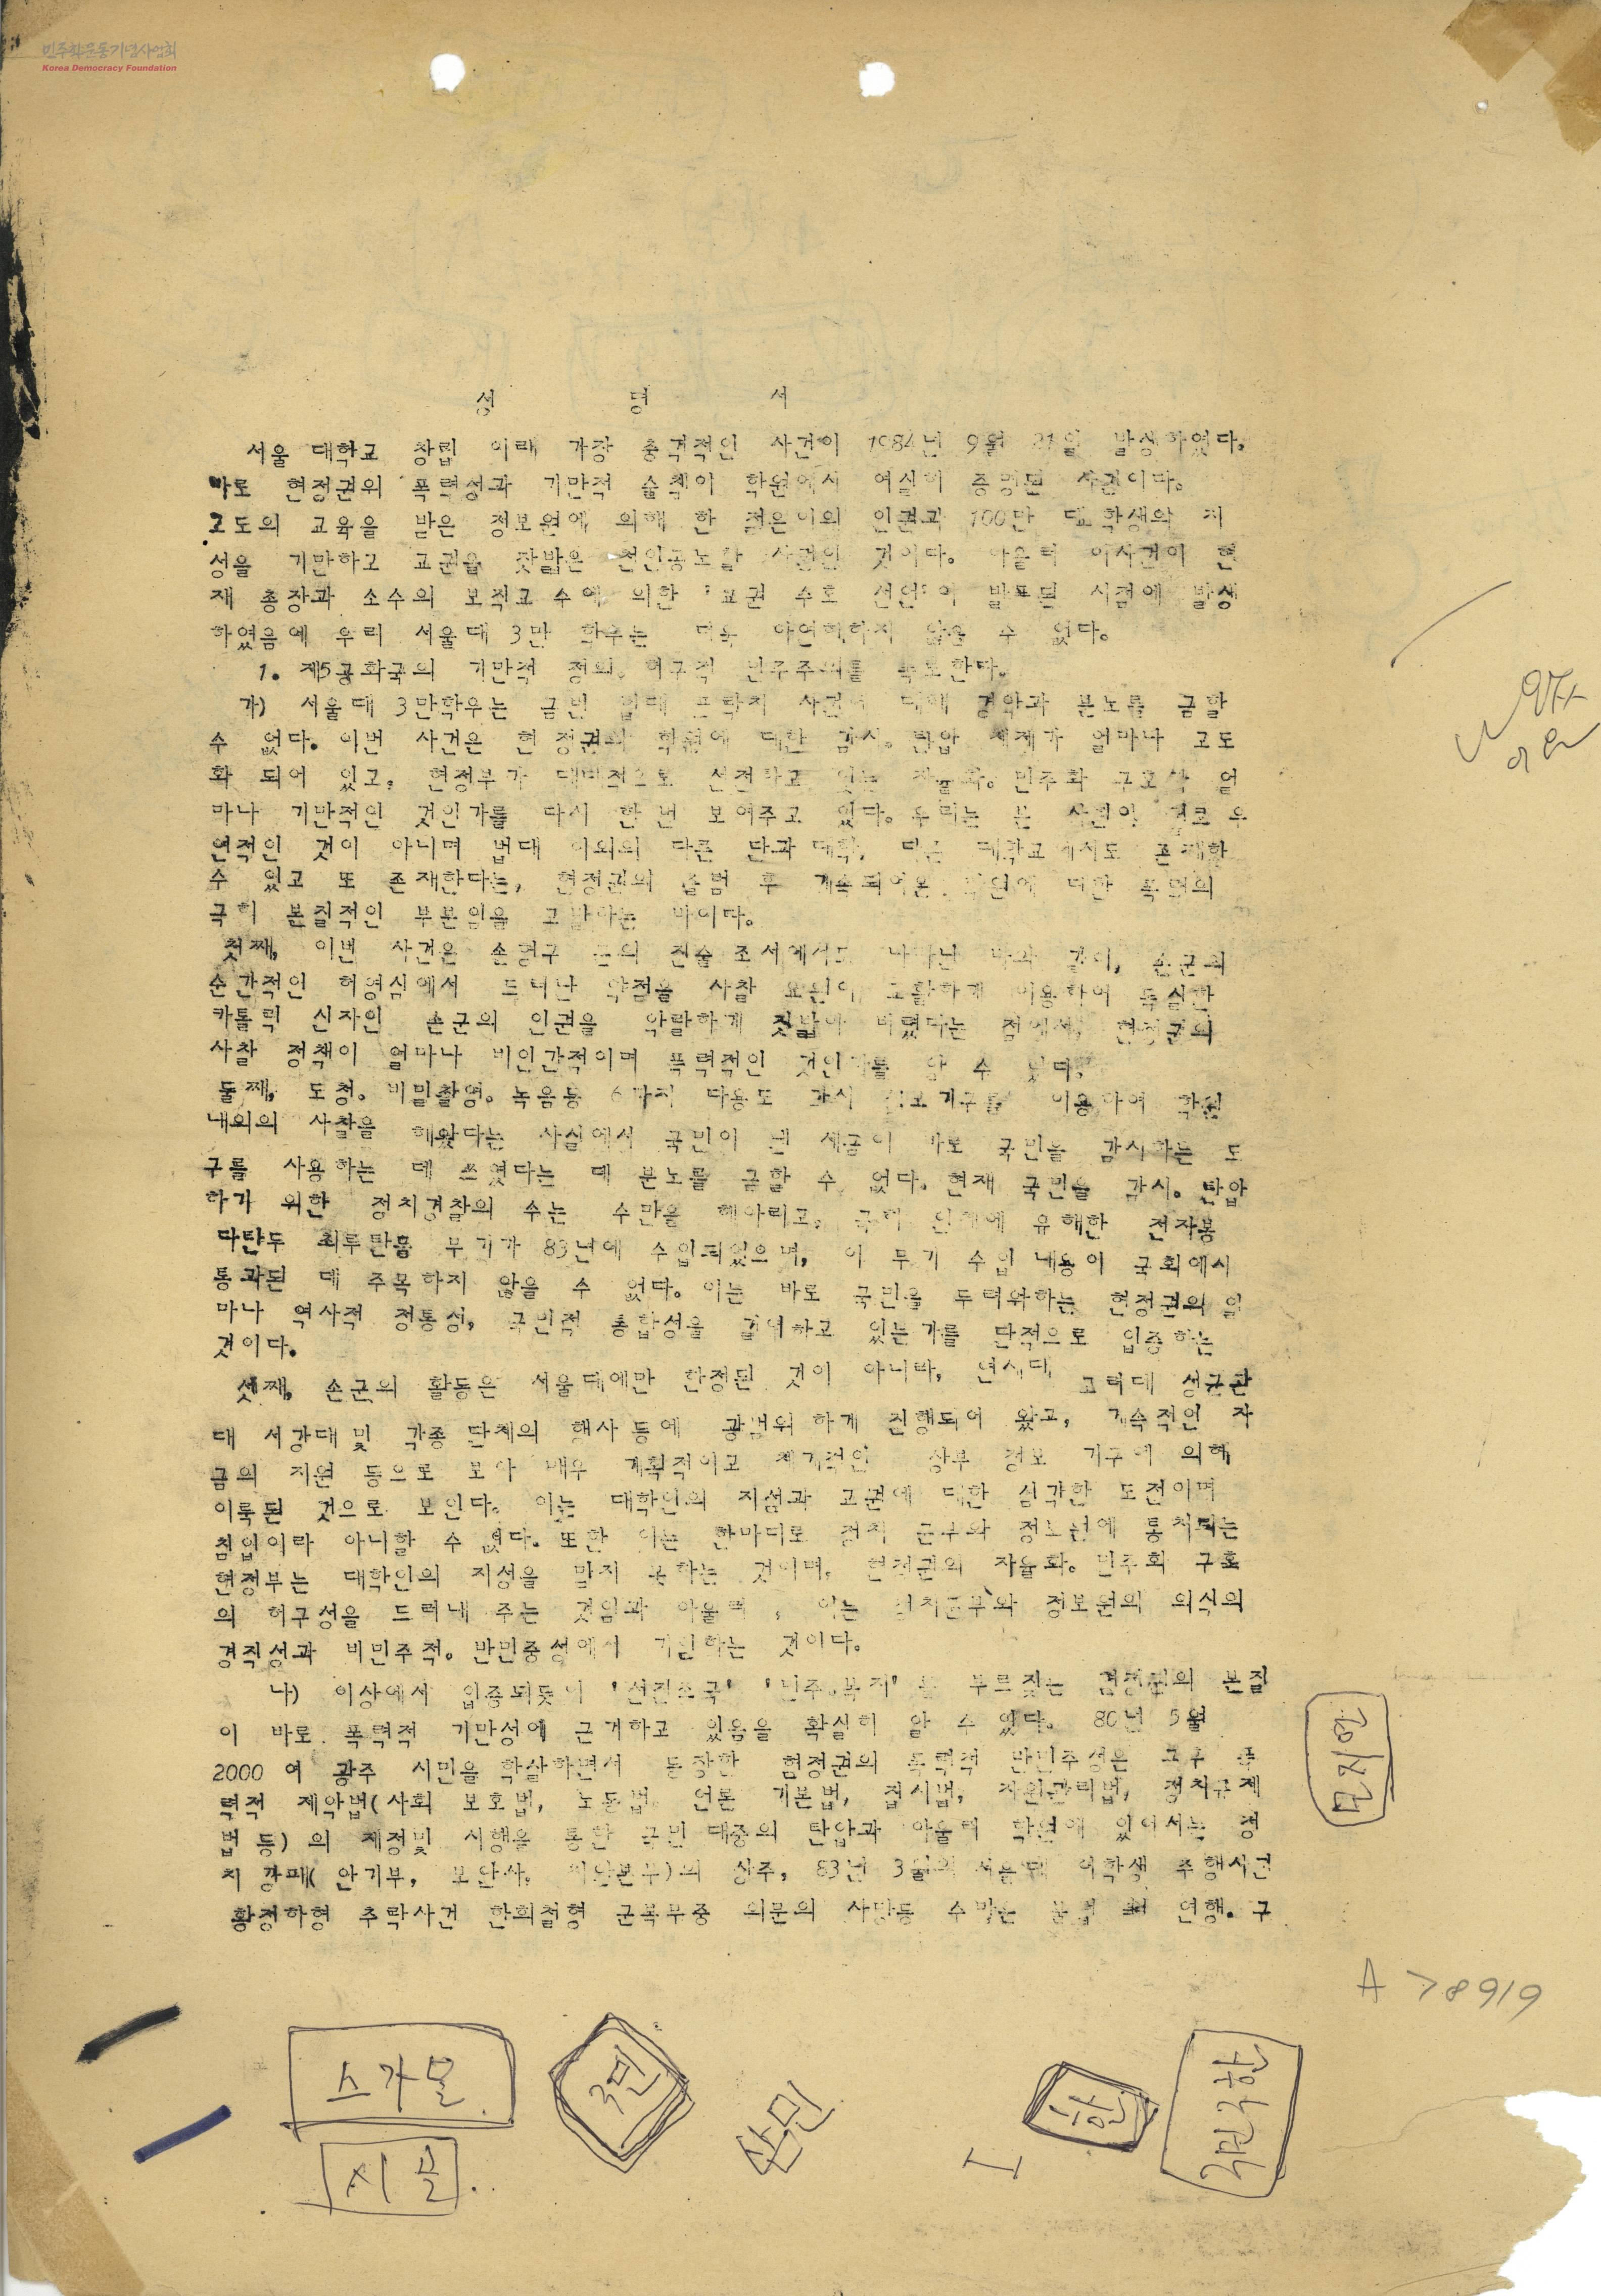 민주화운동기념사업회
Korea Democracy Foundation
성 명 서
서울 대학교 창립 이래 가장 충격적인 사건이 1984년 9월 일 발생하였다.
바로 현정권의 폭력성과 기만적 술책이 학원에서 여실히 증명된 사건이다.
고도의 교육을 받은 정보원에 의해 한 젊은이의 인권과 100만 대학생의 지
성을 기만하고 교권을 짓밟은 천인공노할 사건인 것이다. 아울러 이사건이 현
재 총장과 소수의 보직교수에 의한 '교권 수호 선언'이 발표된 시점에 발생
하였음에 우리 서울대 3만 학우는 더욱 아연해하지 않을 수 없다.
1. 제5공화국의 기만적 정의, 허구적 민주주의를 폭로한다.
가) 서울대 3만학우는 금번 법대 프락치 사건에 대해 경악과 분노를 금할
수 없다. 이번 사건은 현 정권의 학원에 대한 감시. 탄압 체제가 얼마나 고도
화 되어 있고, 현정부가 대대적으로 선전하고 있는 자율화. 민주화 구호가 얼
마나 기만적인 것인가를 다시 한번 보여주고 있다. 우리는 본 사건이 결코 우
연적인 것이 아니며 법대 이외의 다른 단과대학, 다른 대학교에서도 존재할
수 있고 또 존재한다는, 현정권의 출범 후 계속되어온 학원에 대한 폭력의
극히 본질적인 부분임을 고발하는 바이다.
첫째, 이번 사건은 손영구 군의 진술조서에서도 나타난 바와 같이, 손군의
순간적인 허영심에서 드러난 약점을 사찰 요원이 교활하게 이용하여 독실한
카톨릭 신자인 손군의 인권을 악랄하게 짓밟아 버렸다는 점에서, 현정권의
사찰 정책이 얼마나 비인간적이며 폭력적인 것인가를 알 수 있다.
둘째, 도청. 비밀촬영. 녹음등 6가지 다용도 감시 기구를 이용하여 학원
내외의 사찰을 해왔다는 사실에서 국민이 낸 세금이 바로 국민을 감시하는 도
구를 사용하는 데 쓰였다는 데 분노를 금할 수 없다. 현재 국민을 감시. 탄압
하기 위한 정치경찰의 수는 수만을 헤아리고, 극히 인체에 유해한 전자봉
다탄두 최루탄등 무기가 83년에 수입되었으며, 이 무기 수입 내용이 국회에서
통과된 데 주목하지 않을 수 없다. 이는 바로 국민을 두려워하는 현정권의 얼
마나 역사적 정통성, 국민적 통합성을 결여하고 있는가를 단적으로 입증하는
것이다.
셋째, 손군의 활동은 서울대에만 한정된 것이 아니라, 연세대 고려대 성균관
대 서강대 및 각종 단체의 행사 등에 광범위 하게 진행되어 왔고, 계속적인 자
금의 지원 등으로 보아 매우 계획적이고 체계적인 상부 정보 기구에 의해
이룩된 것으로 보인다. 이는 대학인의 지성과 교권에 대한 심각한 도전이며
침입이라 아니할 수 없다. 또한 이는 한마디로 정치 군부와 정보원에 통치되는
현정부는 대학인의 지성을 믿지 못하는 것이며, 현정권의 자율화. 민주화 구호
의 허구성을 드러내 주는 것임과 아울러, 이는 정치군부와 정보원의 의식의
경직성과 비민주적. 반민중성에서 기인하는 것이다.
나) 이상에서 입증되듯이 '선진조국' '민주.복지'를 부르짖는 현정권의 본질
이 바로 폭력적 기만성에 근거하고 있음을 확실히 알 수 있다. 80년 5월
2000 여 광주 시민을 학살하면서 등장한 현정권의 폭력적 반민주성은 그후 폭
력적 제악법(사회 보호법, 노동법. 언론 기본법, 집시법, 자원관리법, 정치규제
법 등)의 제정및 시행을 통한 국민 대중의 탄압과 아울러 학원에 있어서는 정
치 깡패(안기부, 보안사, 치안본부)의 상주, 83년 3월의 서울대 여학생 추행사건
황정하형 추락사건 한희철형 군복무중 의문의 사망등 수많은 불법 연행. 구
문지연
A 78919
스가모
시골.
국민
산민
한
국민구한